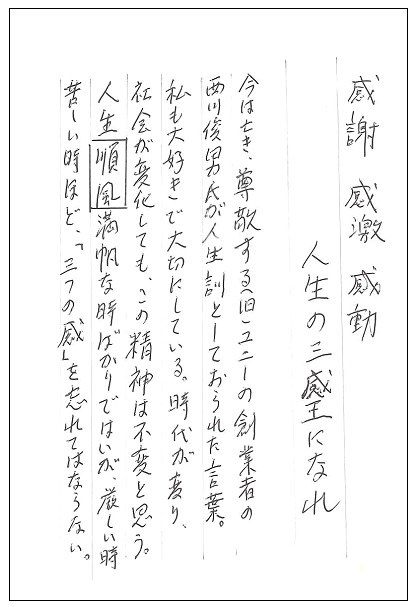 感謝 感激 感動
人生の三感王になれ
今は亡き、尊敬する(旧)ユニーの創業者の
西川俊男氏が人生訓としておられた言葉。
私も大好きで大切にしている。時代が変り、
社会が変化しても、この精神は不変と思う。
人生順風満帆な時ばかりではいが、厳しい時
苦しい時ほど、「三つの感」を忘れてはならない。